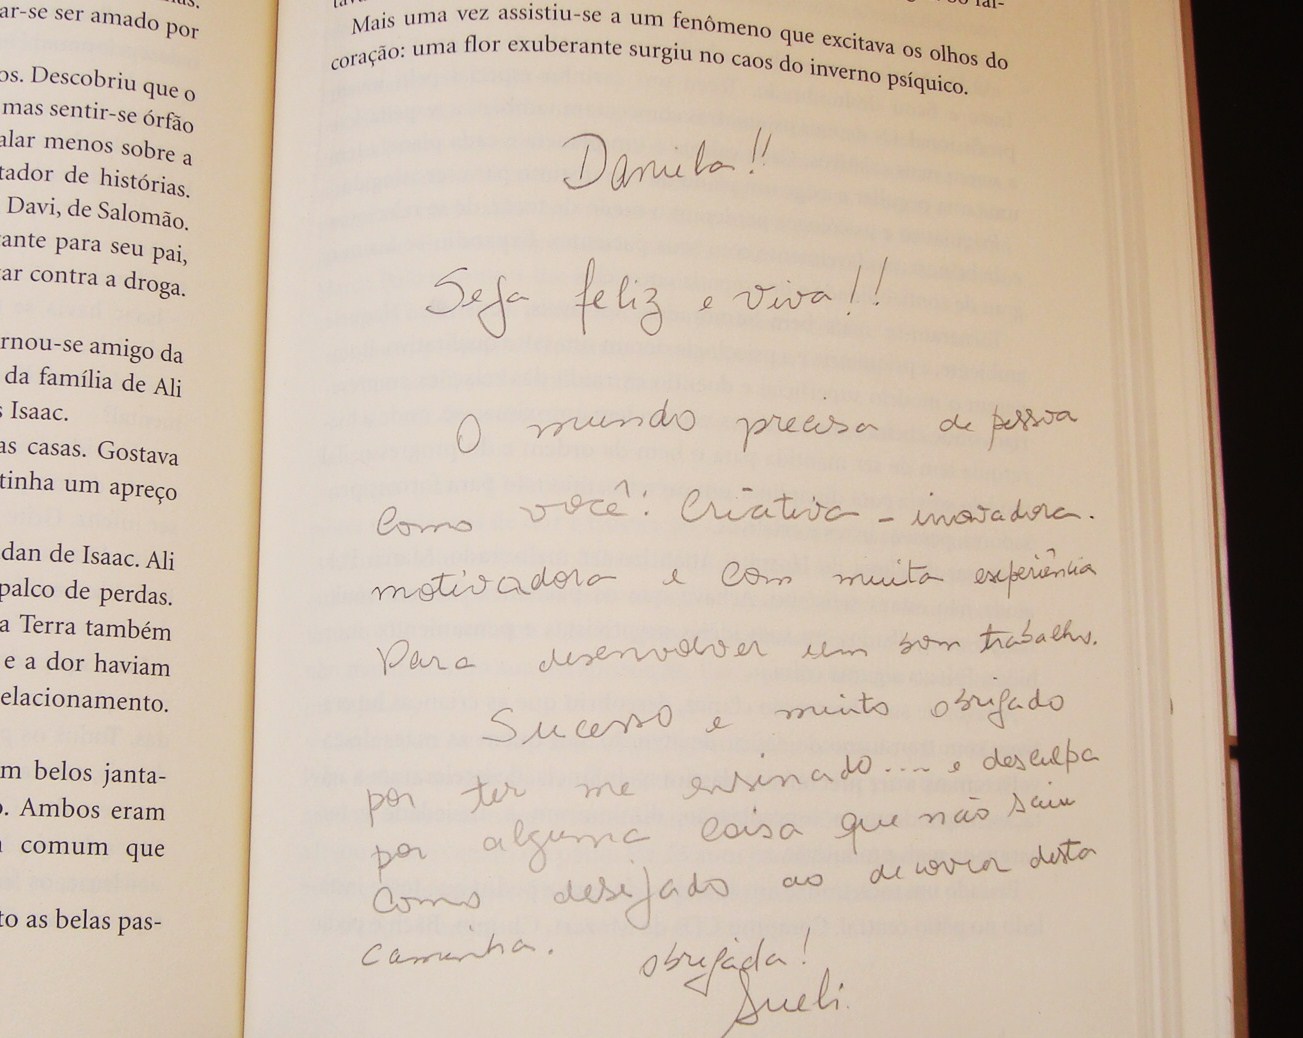 ar-se ser amado por
os. Descobriu que o
mas sentir-se órfão
alar menos sobre a
tador de histórias.
Davi, de Salomão.
ante para seu pai,
ar contra a droga.
rnou-se amigo da
da família de Ali
s Isaac.
as casas. Gostava
tinha um apreço
dan de Isaac. Ali
palco de perdas.
a Terra também
e a dor haviam
elacionamento.
m belos janta-
o. Ambos eram
comum que
to as belas pas-
Mais uma vez assistiu-se a um fenômeno que excitava os olhos do
coração: uma flor exuberante surgiu no caos do inverno psíquico.
Daniela!!
Seja feliz e viva!!
O mundo precisa de pessoa
como você: Criativa - inovadora.
motivadora e com muita experiência
para desenvolver um bom trabalho.
Sucesso e muito obrigado
por ter me ensinado.... e desculpa
por alguma coisa que não saiu
como desejado ao decorrer desta
caminha.
obrigada!
Sueli.